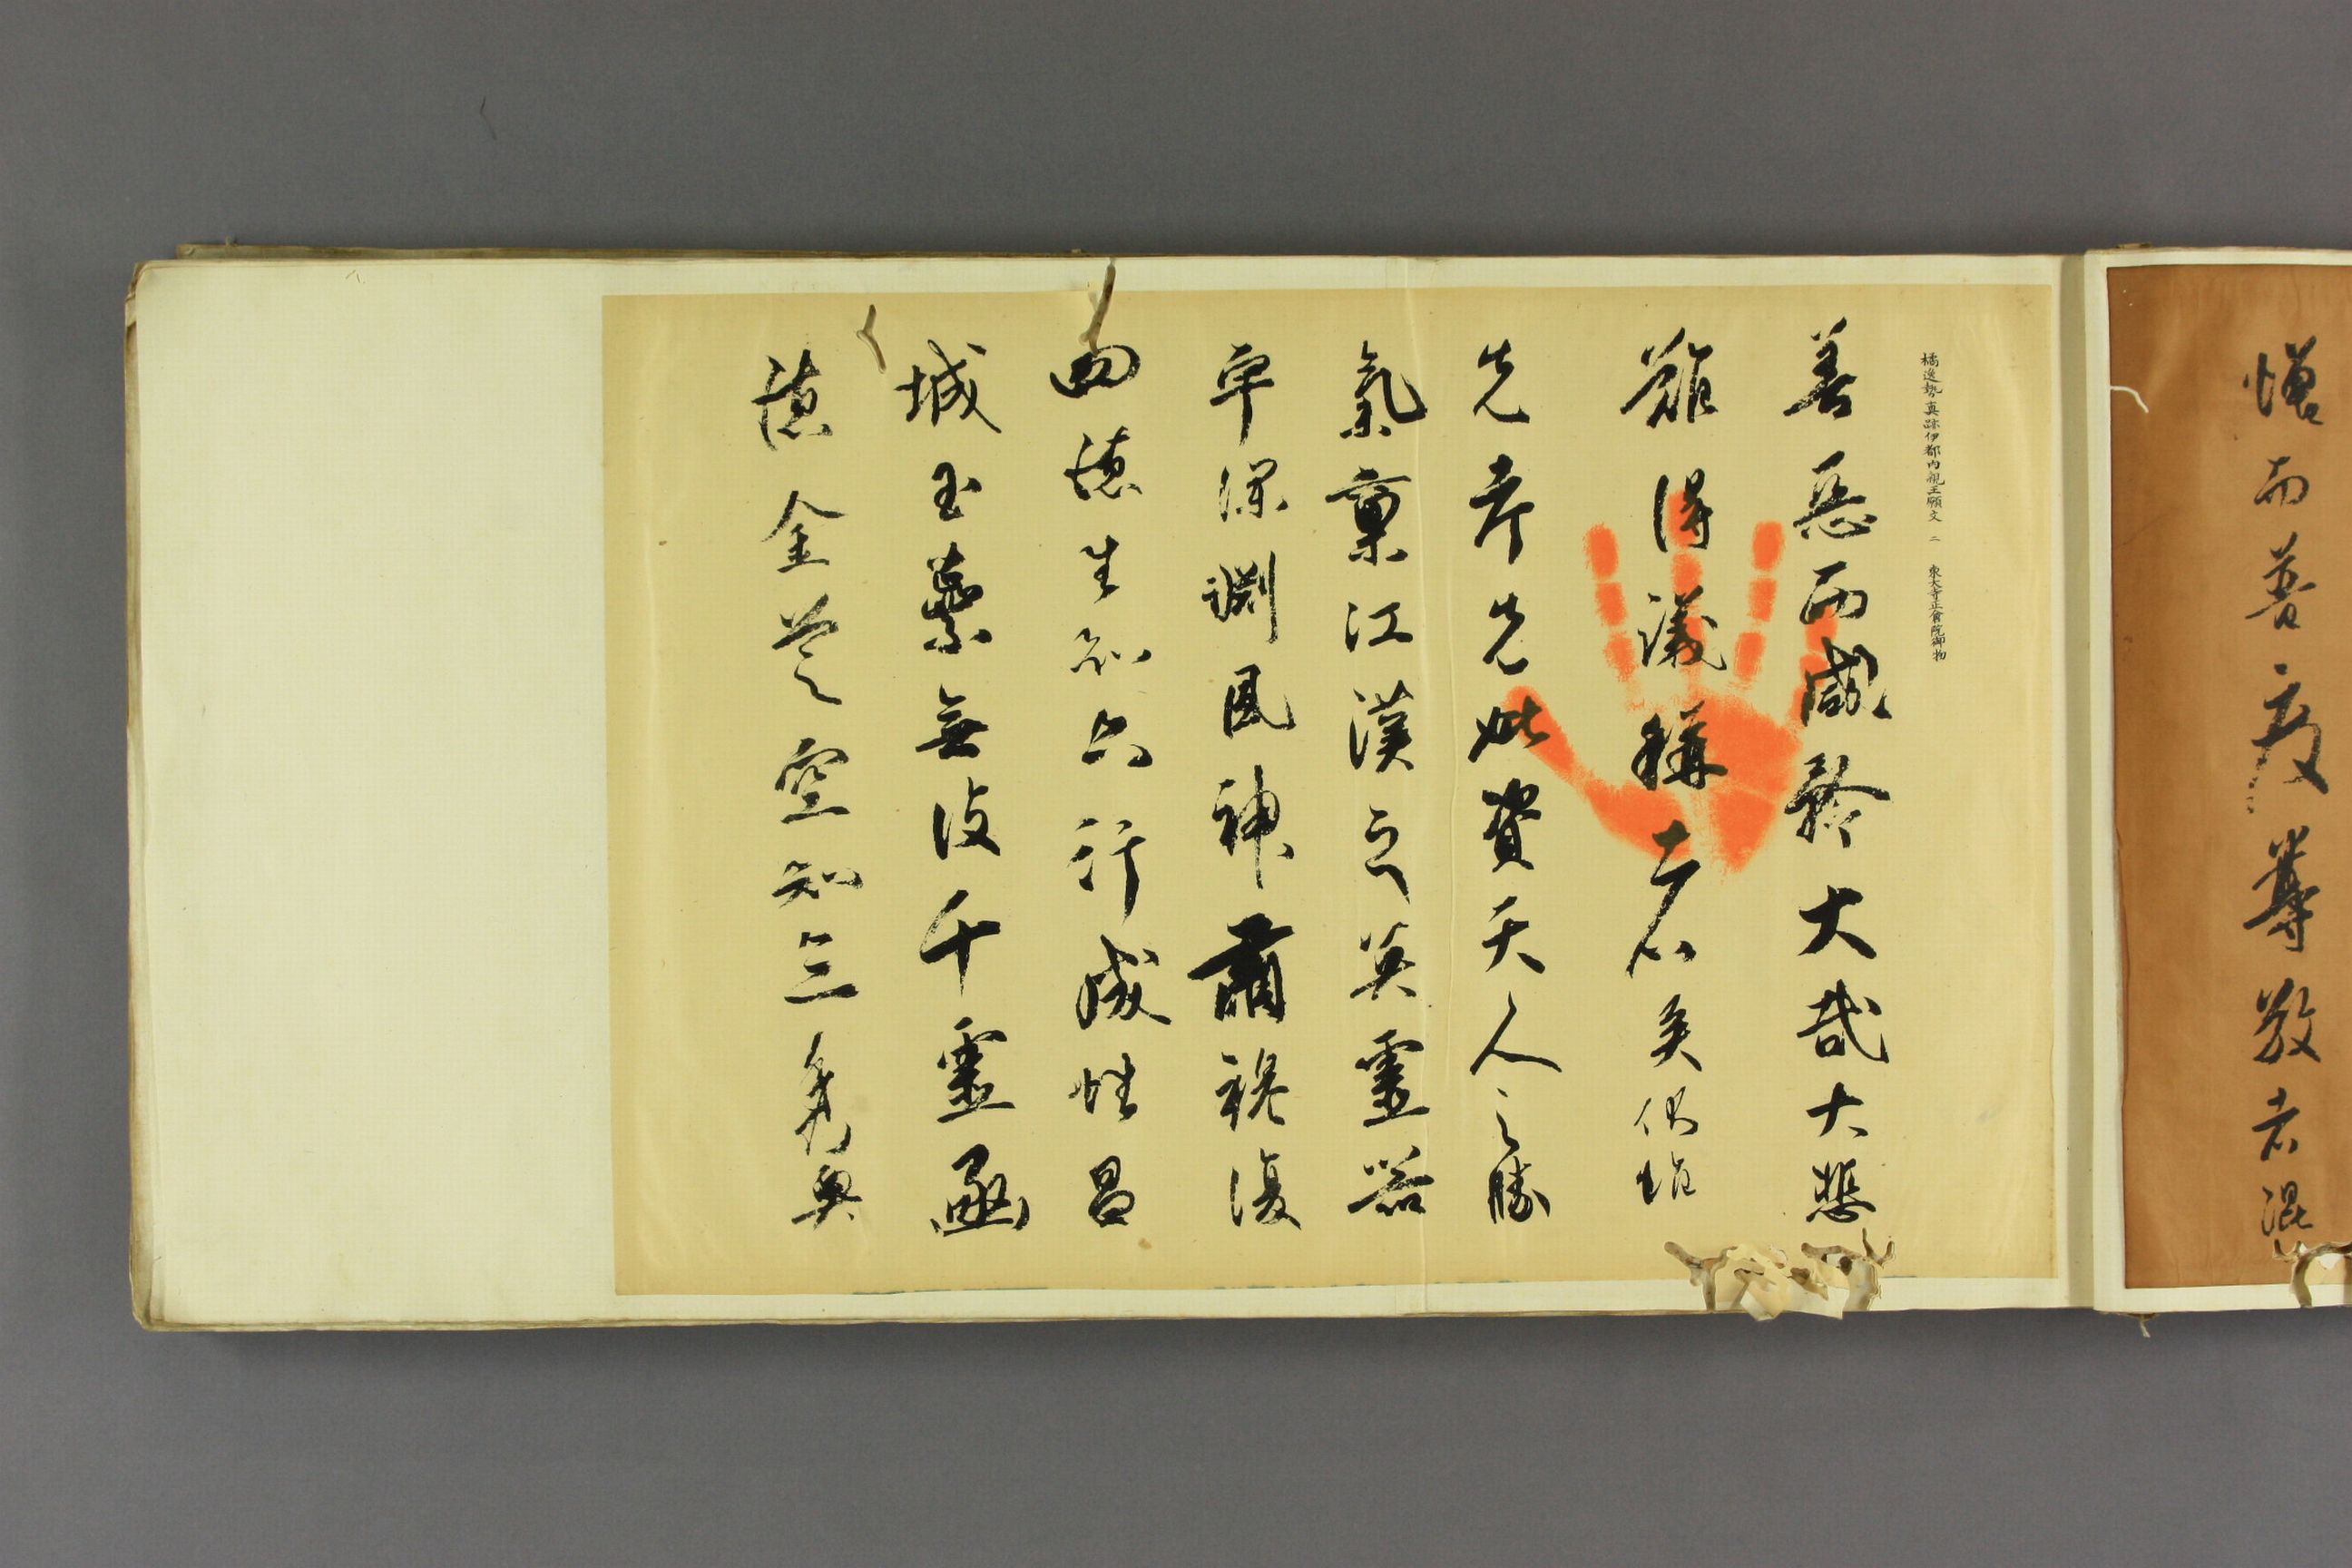 慢而普度尊敬者混
橘逸勢真跡伊都内親王願文 二 東大寺正倉院御物
善惡而咸矜大哉大悲
難得議稱者矣仰惟
先考先妣資天人之勝
氣稟江漢之英靈器
宇深淵風神肅穆復
四德生知六行成性昌
城玉蘂無復千靈函
德金芝空知三秀奥